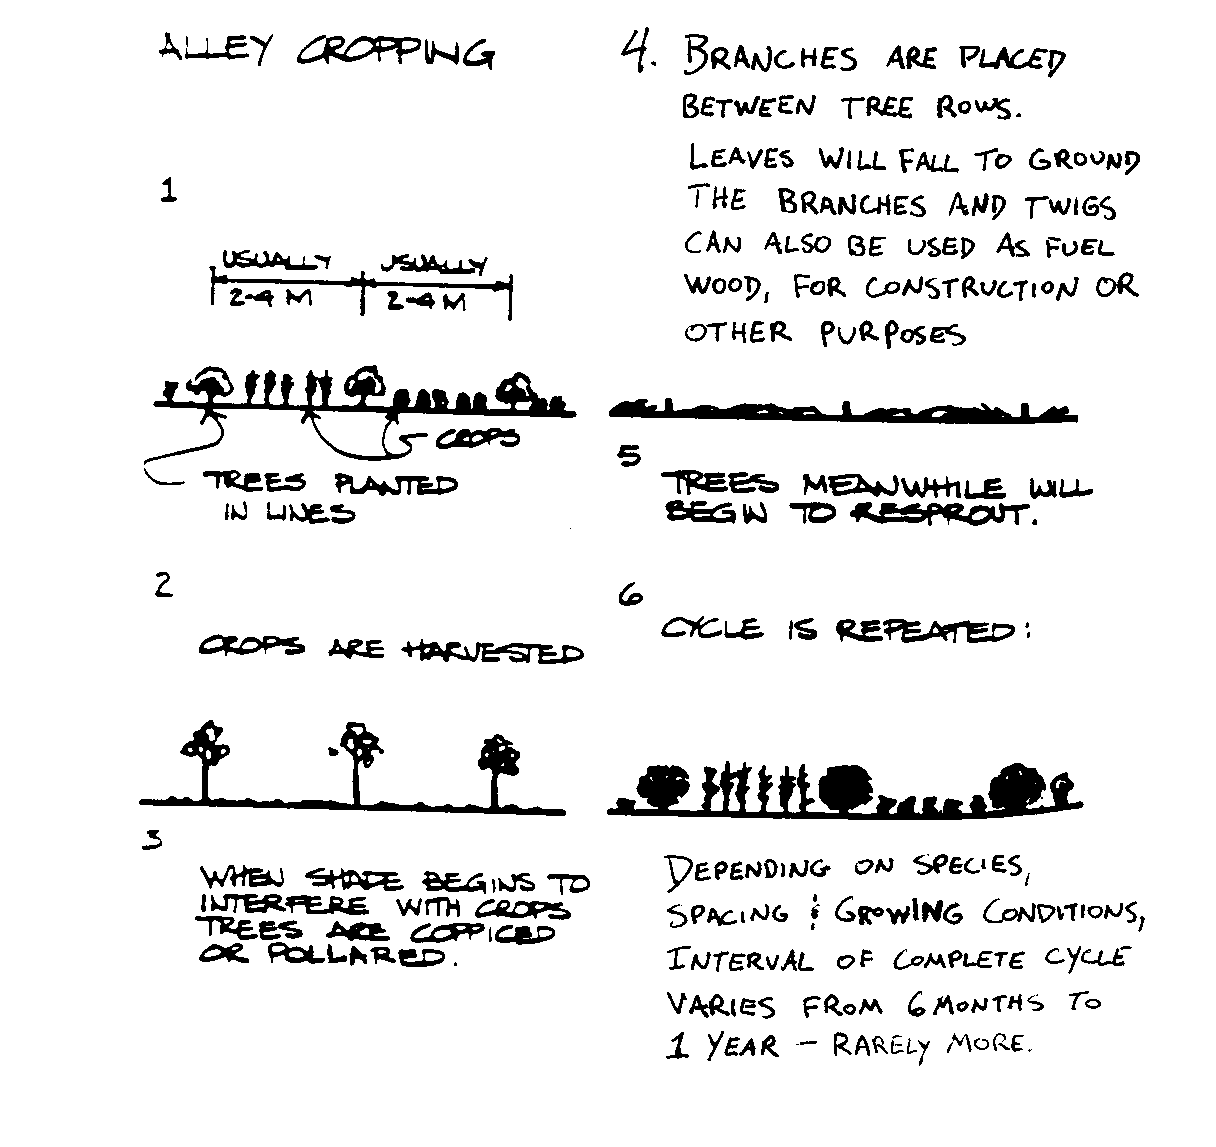 ALLEY CROPPING
1
USUALLY USUALLY
2-4 M 2-4 M
CROPS
TREES PLANTED
IN LINES
2
CROPS ARE HARVESTED
3
WHEN SHADE BEGINS TO
INTERFERE WITH CROPS
TREES ARE COPPICED
OR POLLARED.
4. BRANCHES ARE PLACED
BETWEEN TREE ROWS.
LEAVES WILL FALL TO GROUND
THE BRANCHES AND TWIGS
CAN ALSO BE USED AS FUEL
WOOD, FOR CONSTRUCTION OR
OTHER PURPOSES
5
TREES MEANWHILE WILL
BEGIN TO RESPROUT.
6
CYCLE IS REPEATED:
DEPENDING ON SPECIES,
SPACING & GROWING CONDITIONS,
INTERVAL OF COMPLETE CYCLE
VARIES FROM 6 MONTHS TO
1 YEAR - RARELY MORE.